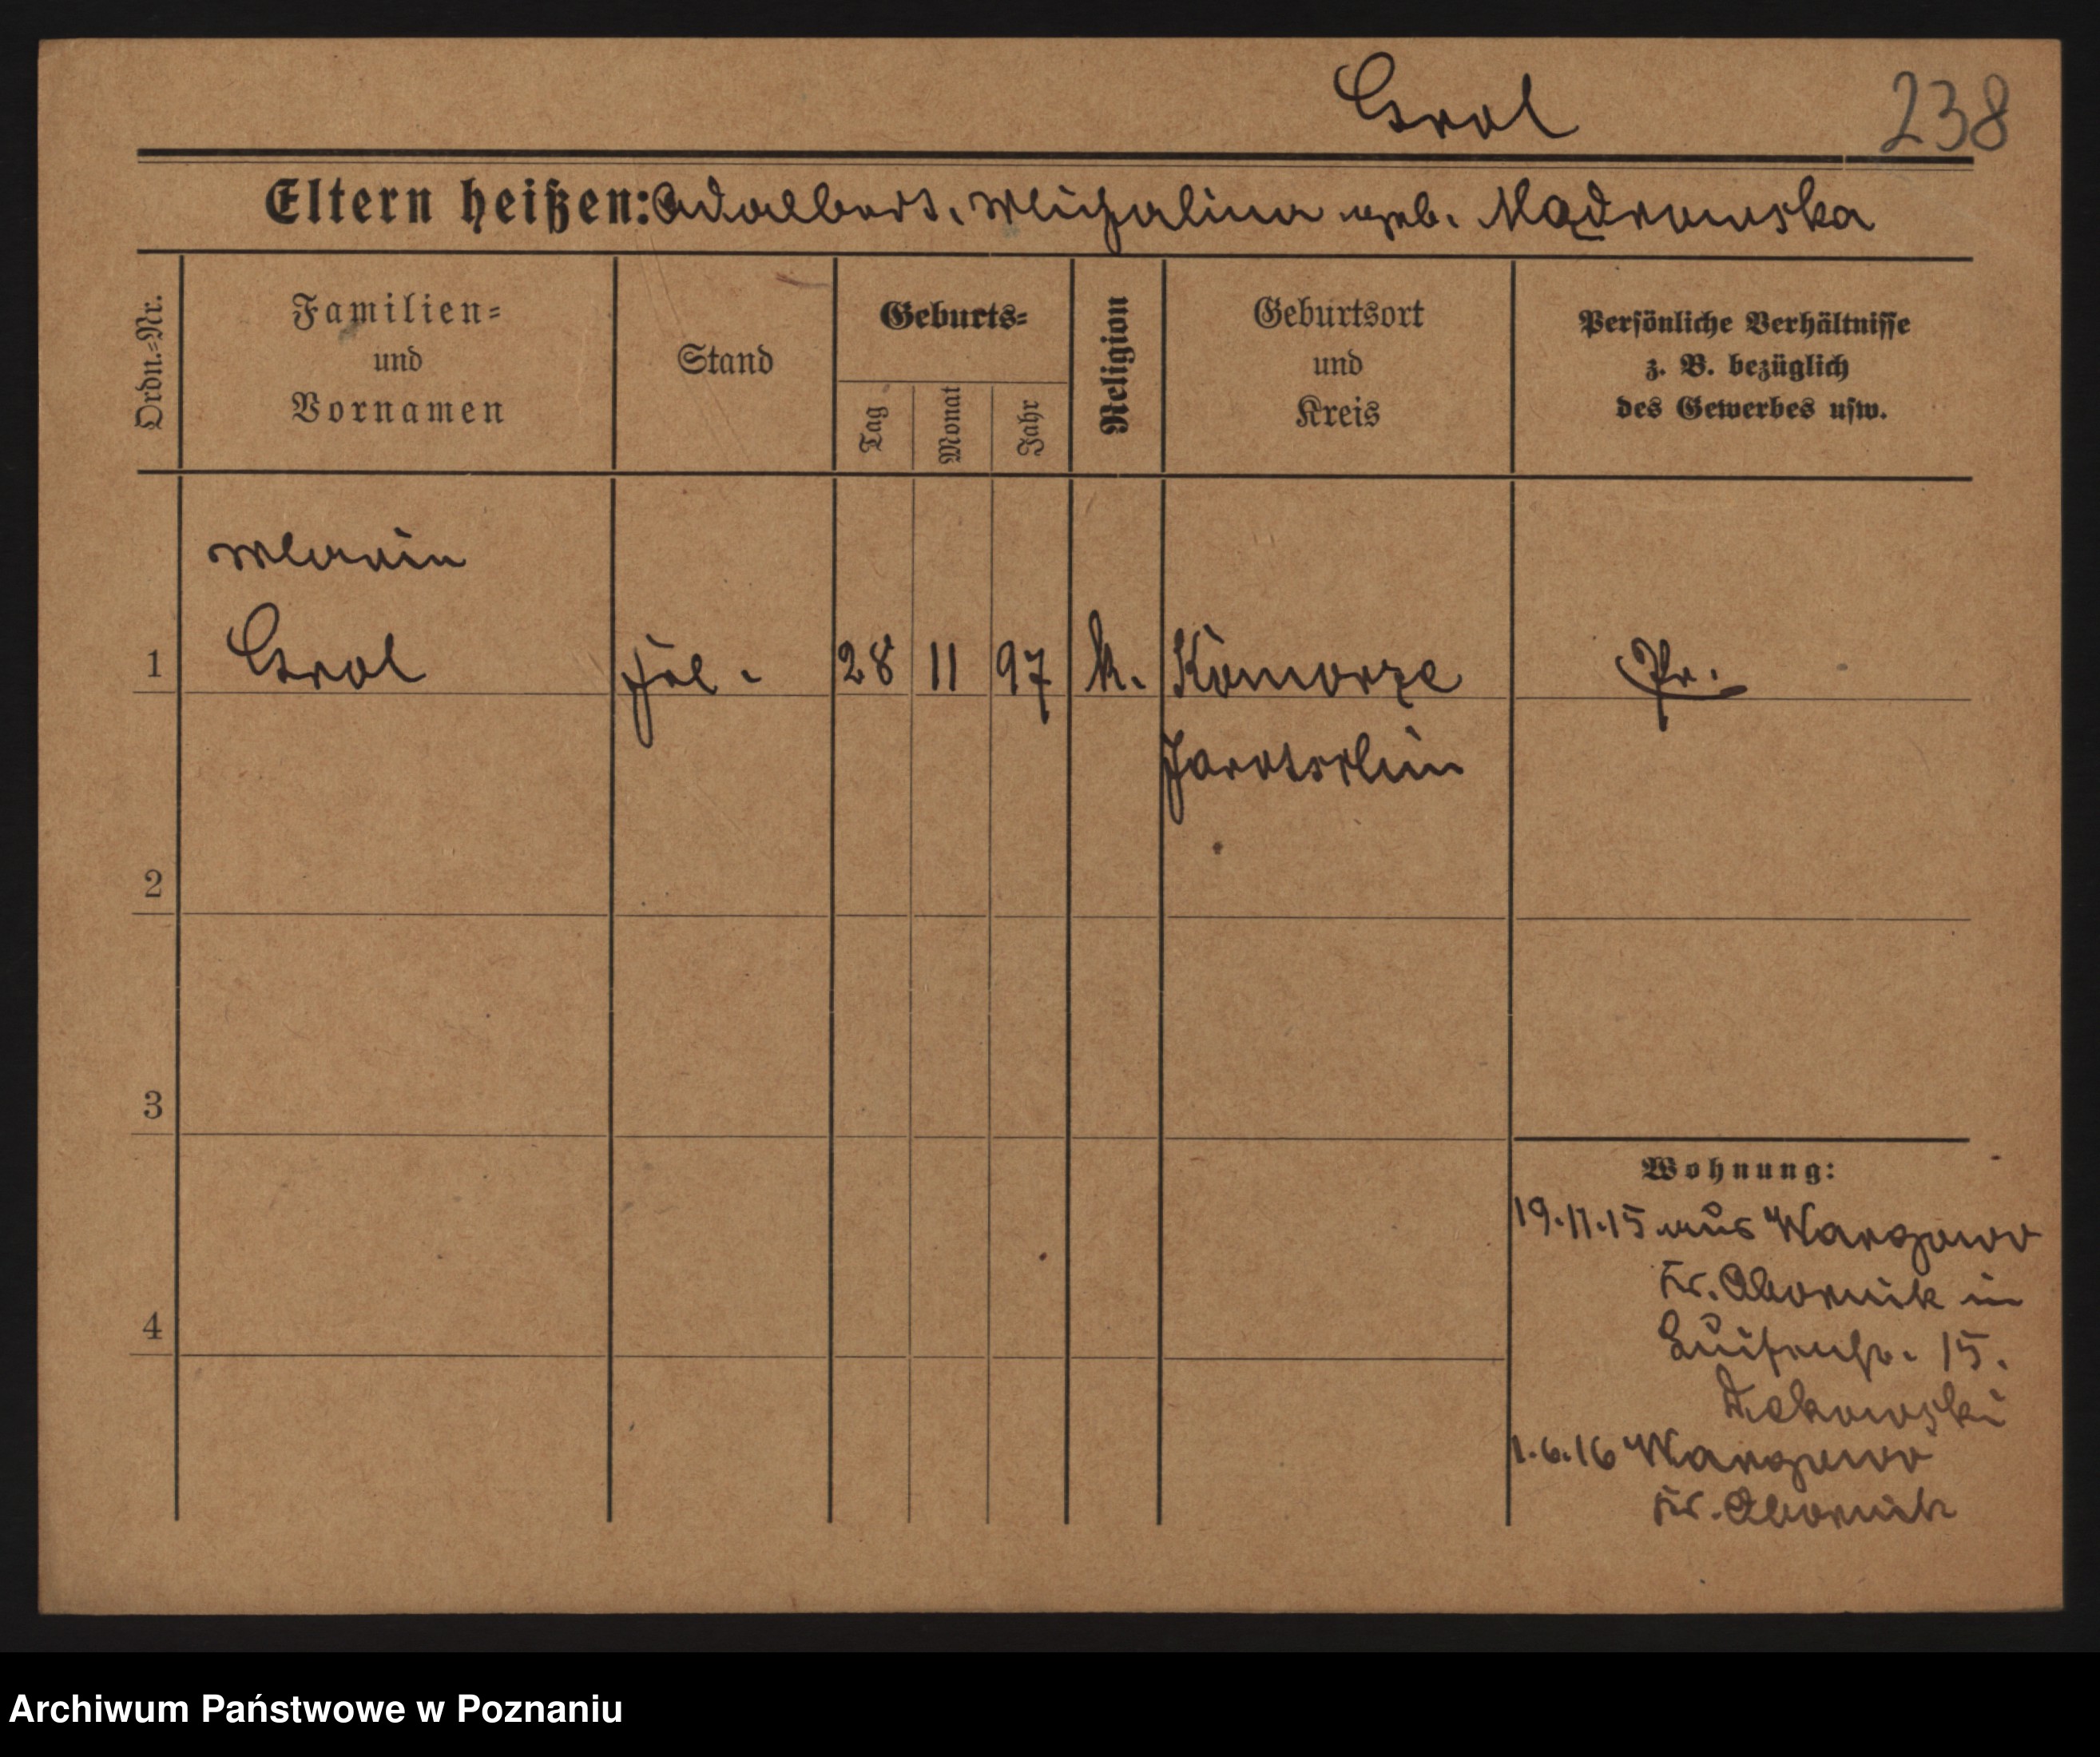 Grol 238
Eltern heißen: Adalbert, Michalina geb. Mądrowska
Ordn.-Nr.
Familien-
und
Vornamen
Stand
Geburts-
Tag
Monat
Jahr
Religion
Geburtsort
und
Kreis
Persönliche Verhältnisse
z. B. bezüglich
des Gewerbes usw.
Maria
1 Grol 28 11 97 k. Komorze Pr.
Jarotschin
2
3
4
Wohnung:
19.11.15 aus Wargowo
Kr. Obornik in
Luisenstr. 15.
1.6.16 Wargowo
Kr. Obornik
Archiwum Państwowe w Poznaniu